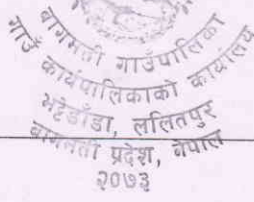 बागमती गाउँपालिका
गाउँ कार्यपालिकाको कार्यालय
भट्टेडाँडा, ललितपुर
बागमती प्रदेश, नेपाल
२०७३